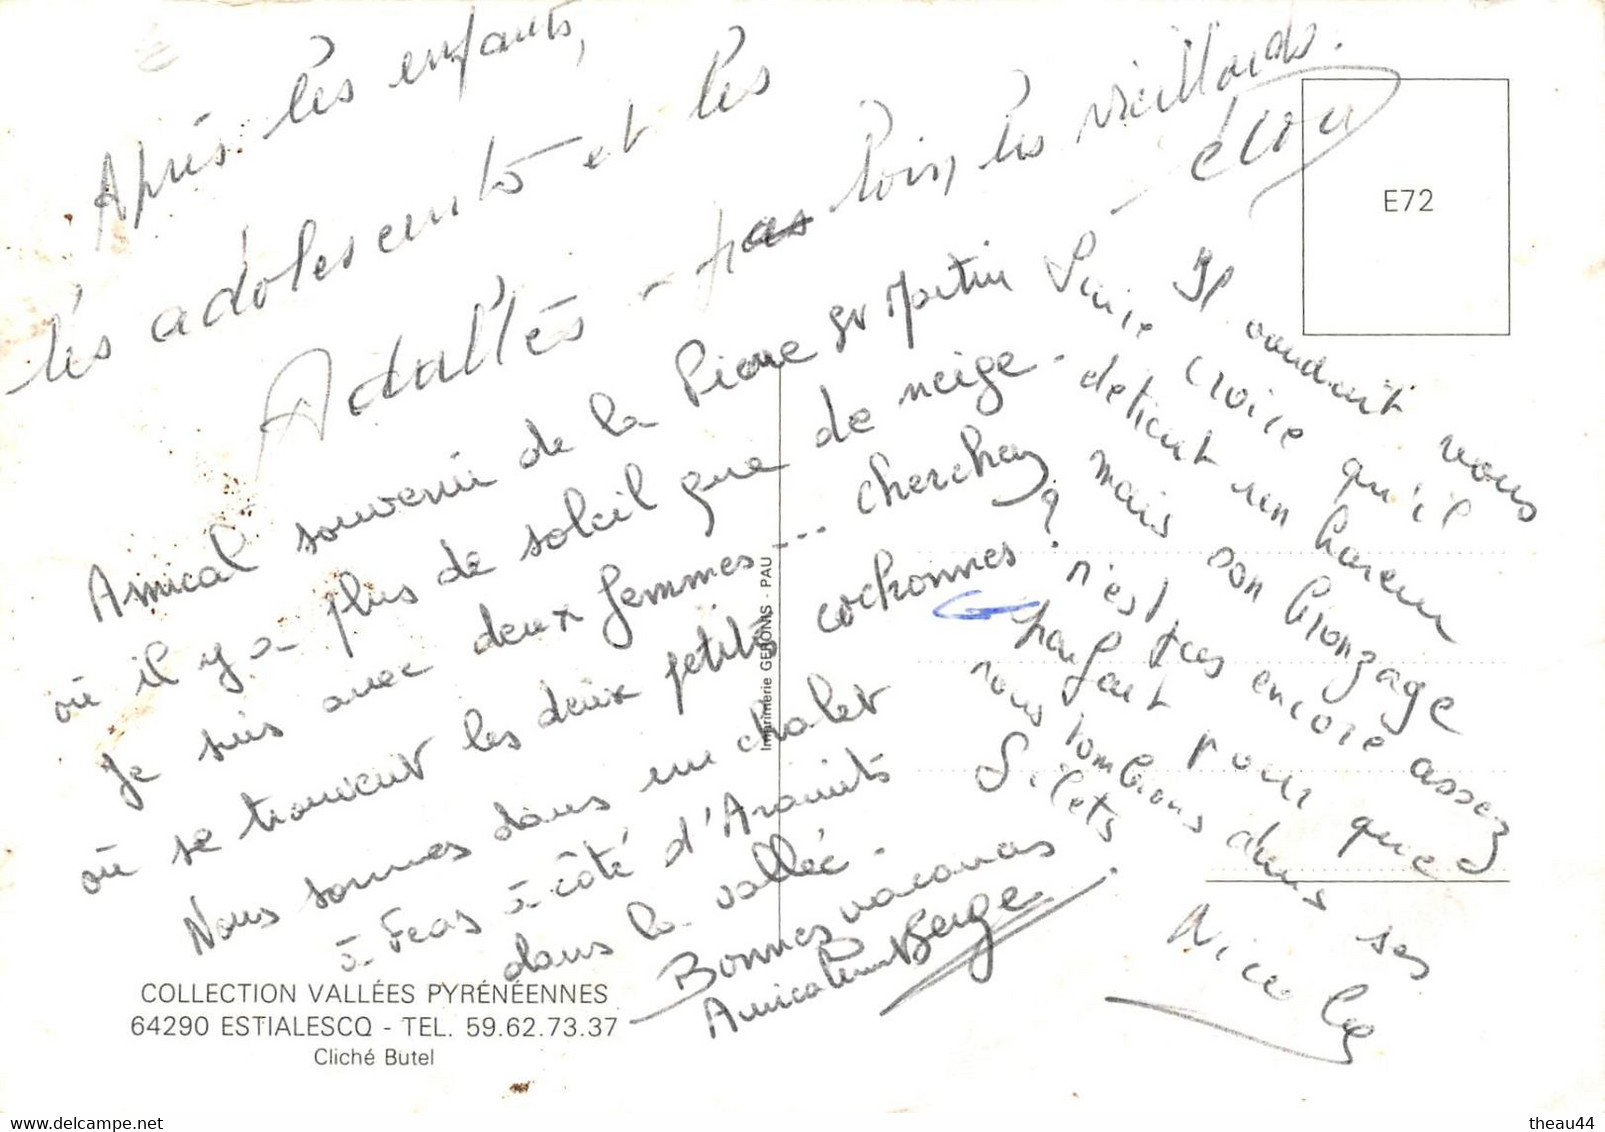 Après les enfants,
les adolescents et les
Adultes - pas loin, les vieillards.
Amical souvenir de la Pierre St Martin
où il y a plus de soleil que de neige.
Je suis avec deux femmes... cherchez
où se trouvent les deux petites cochonnes ?
Nous sommes dans un chalet
à Féas à côté d'Aramits
dans la vallée.
Bonnes vacances
Amicalement Serge
Il voudrait vous
faire croire qu'il
détient un harem
mais son bronzage
n'est pas encore assez
parfait pour que
nous tombions dans ses
filets
Nicole
E72
Imprimerie GERONIS - PAU
COLLECTION VALLÉES PYRÉNÉENNES
64290 ESTIALESCQ - TEL. 59.62.73.37
Cliché Butel
www.delcampe.net
theau44